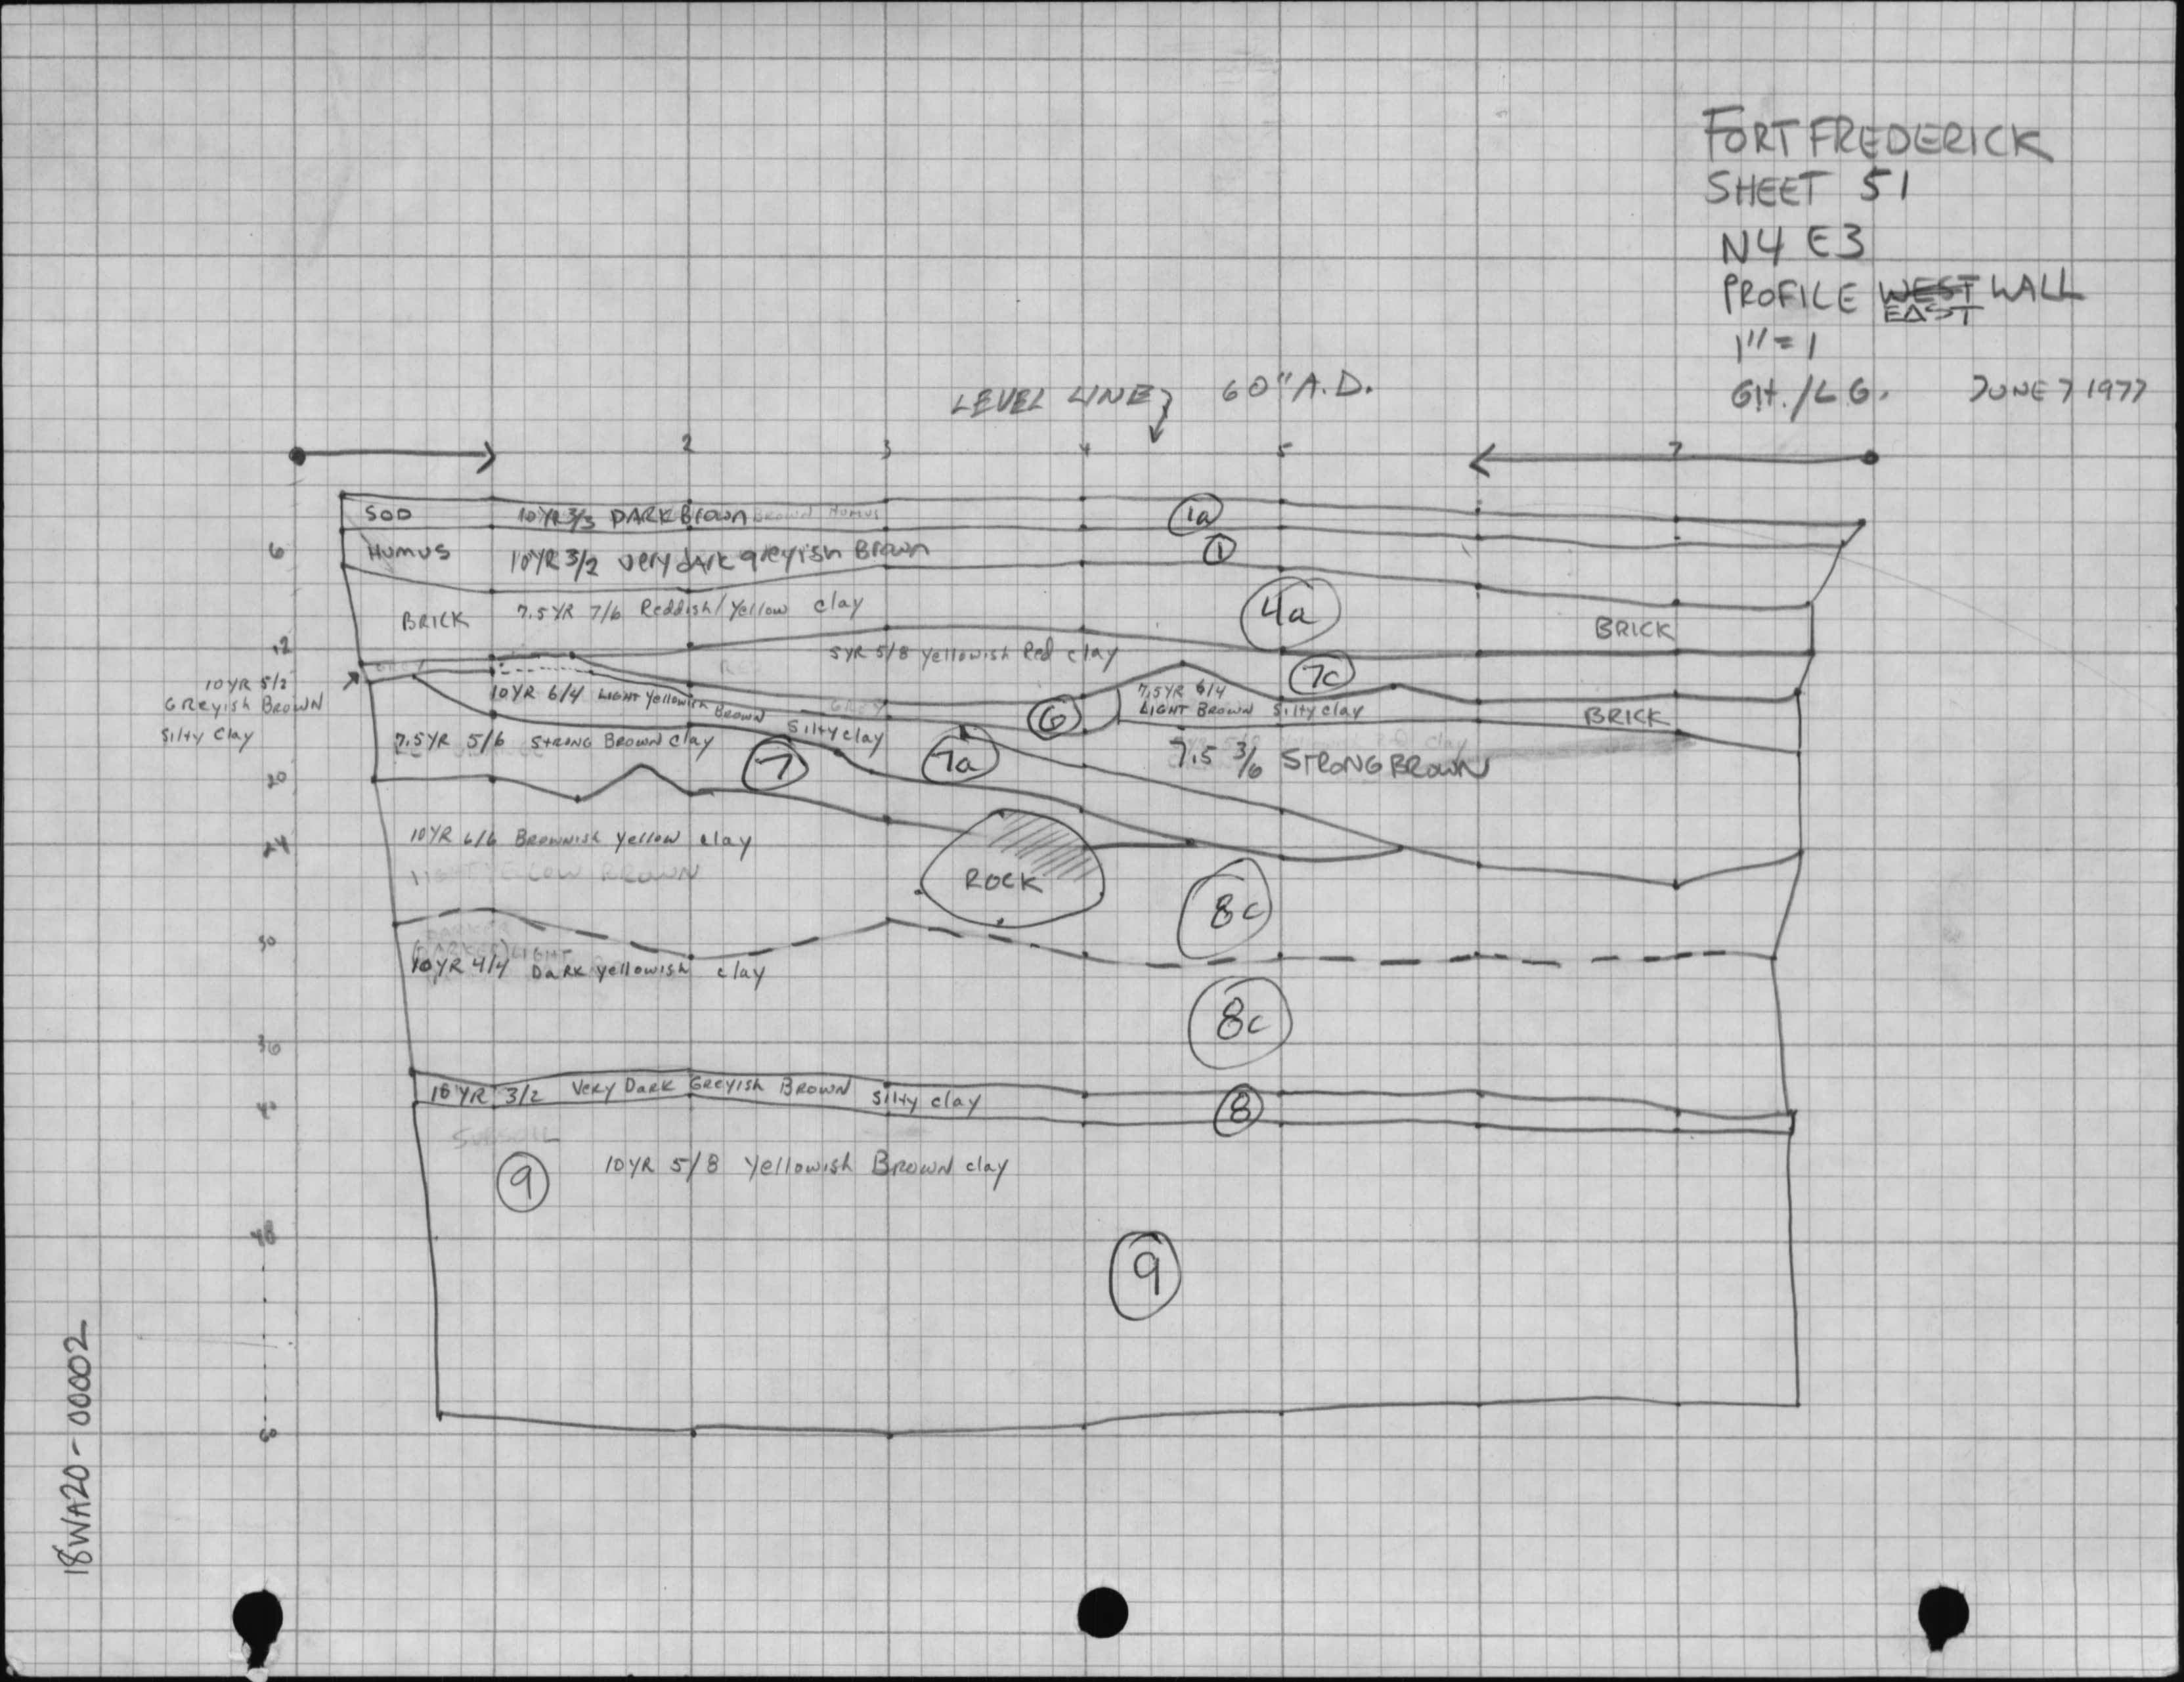 FORT FREDERICK
SHEET 51
N4 E3
PROFILE WEST WALL
EAST
1" = 1
GH./LG. JUNE 7 1977
LEVEL LINE 60" A.D.
2 3 4 5 7
SOD 10YR 3/3 DARK BROWN BROWN HUMUS 1a
6 HUMUS 10YR 3/2 very dark greyish Brown 1
BRICK 7.5YR 7/6 Reddish/Yellow clay 4a BRICK
12 5YR 5/8 Yellowish Red clay 7c
GREY RED
10YR 5/2
GREYISH BROWN
Silty Clay
10YR 6/4 LIGHT Yellowish BROWN Silty clay
GREY
6
7.5YR 6/4
LIGHT BROWN Silty clay BRICK
7.5YR 5/6 STRONG BROWN clay 7 7a
7.5 3/6 STRONG BROWN
20
24 10YR 6/6 BROWNISH Yellow clay
LIGHT YELLOW BROWN
ROCK 8c
30
DARKER
(DARKER) LIGHT
10YR 4/4 DARK yellowish clay
8c
36
10YR 3/2 Very Dark GREYISH BROWN Silty clay 8
40
SUBSOIL
9 10YR 5/8 Yellowish BROWN clay
48
9
60
18WA20-00002